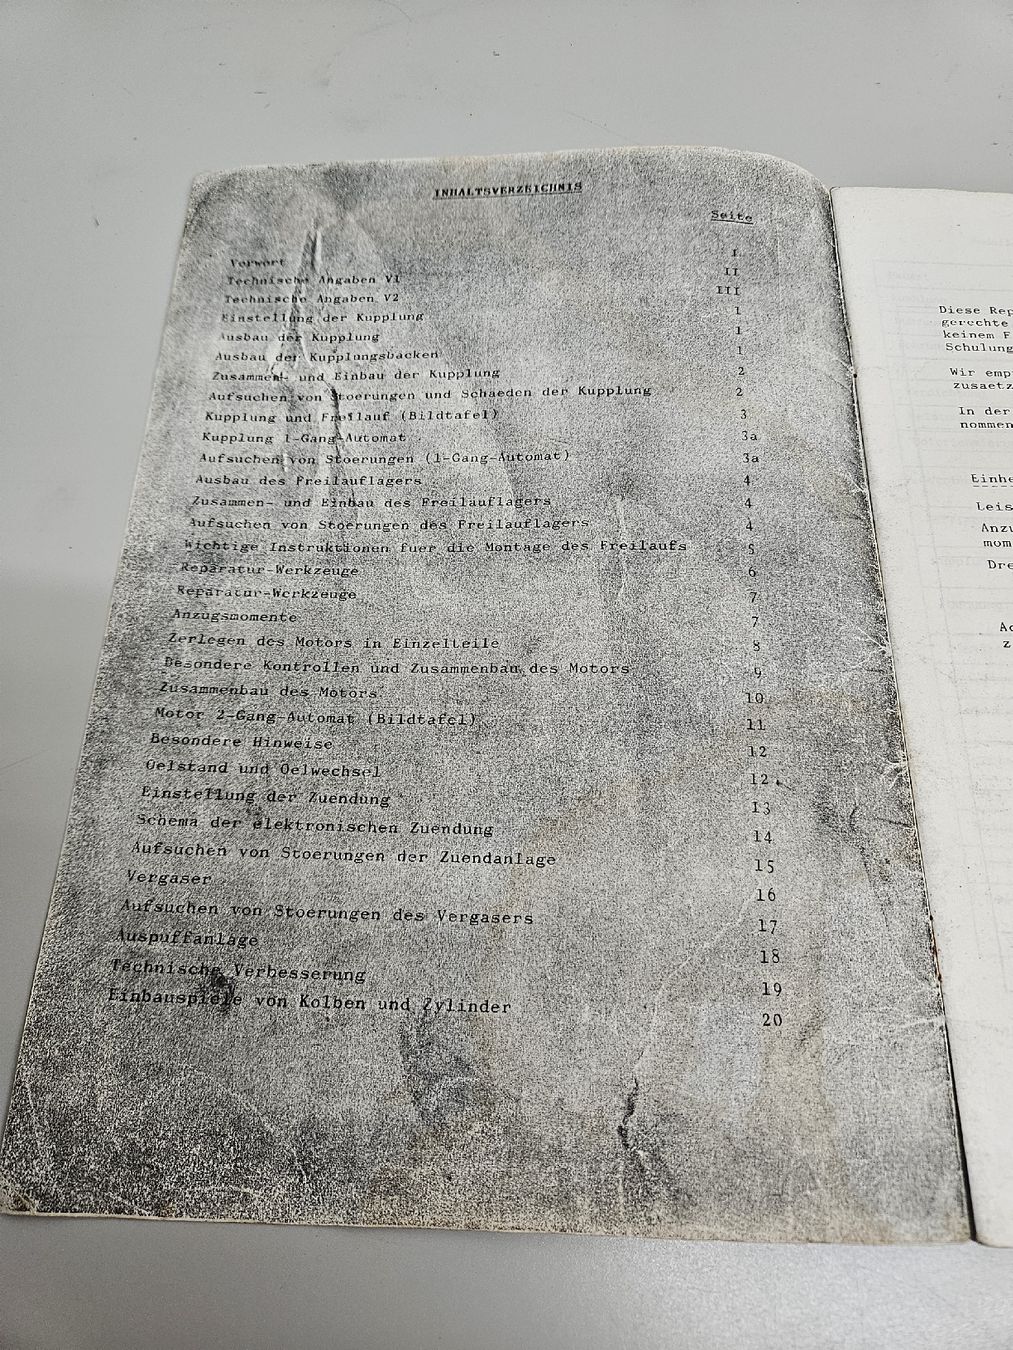 INHALTSVERZEICHNIS
Seite
Vorwort I
Technische Angaben V1 II
Technische Angaben V2 III
Einstellung der Kupplung 1
Ausbau der Kupplung 1
Ausbau der Kupplungsbacken 1
Zusammen- und Einbau der Kupplung 2
Aufsuchen von Stoerungen und Schaeden der Kupplung 2
Kupplung und Freilauf (Bildtafel) 3
Kupplung 1-Gang-Automat 3a
Aufsuchen von Stoerungen (1-Gang-Automat) 3a
Ausbau des Freilauflagers 4
Zusammen- und Einbau des Freilauflagers 4
Aufsuchen von Stoerungen des Freilauflagers 4
Wichtige Instruktionen fuer die Montage des Freilaufs 5
Reparatur-Werkzeuge 6
Reparatur-Werkzeuge 7
Anzugsmomente 7
Zerlegen des Motors in Einzelteile 8
Besondere Kontrollen und Zusammenbau des Motors 9
Zusammenbau des Motors 10
Motor 2-Gang-Automat (Bildtafel) 11
Besondere Hinweise 12
Oelstand und Oelwechsel 12
Einstellung der Zuendung 13
Schema der elektronischen Zuendung 14
Aufsuchen von Stoerungen der Zuendanlage 15
Vergaser 16
Aufsuchen von Stoerungen des Vergasers 17
Auspuffanlage 18
Technische Verbesserung 19
Einbauspiele von Kolben und Zylinder 20
Diese Rep
gerechte
keinem F
Schulung
Wir emp
zusaetz
In der
nommen
Einhe
Leis
Anzu
mom
Dre
Ac
z